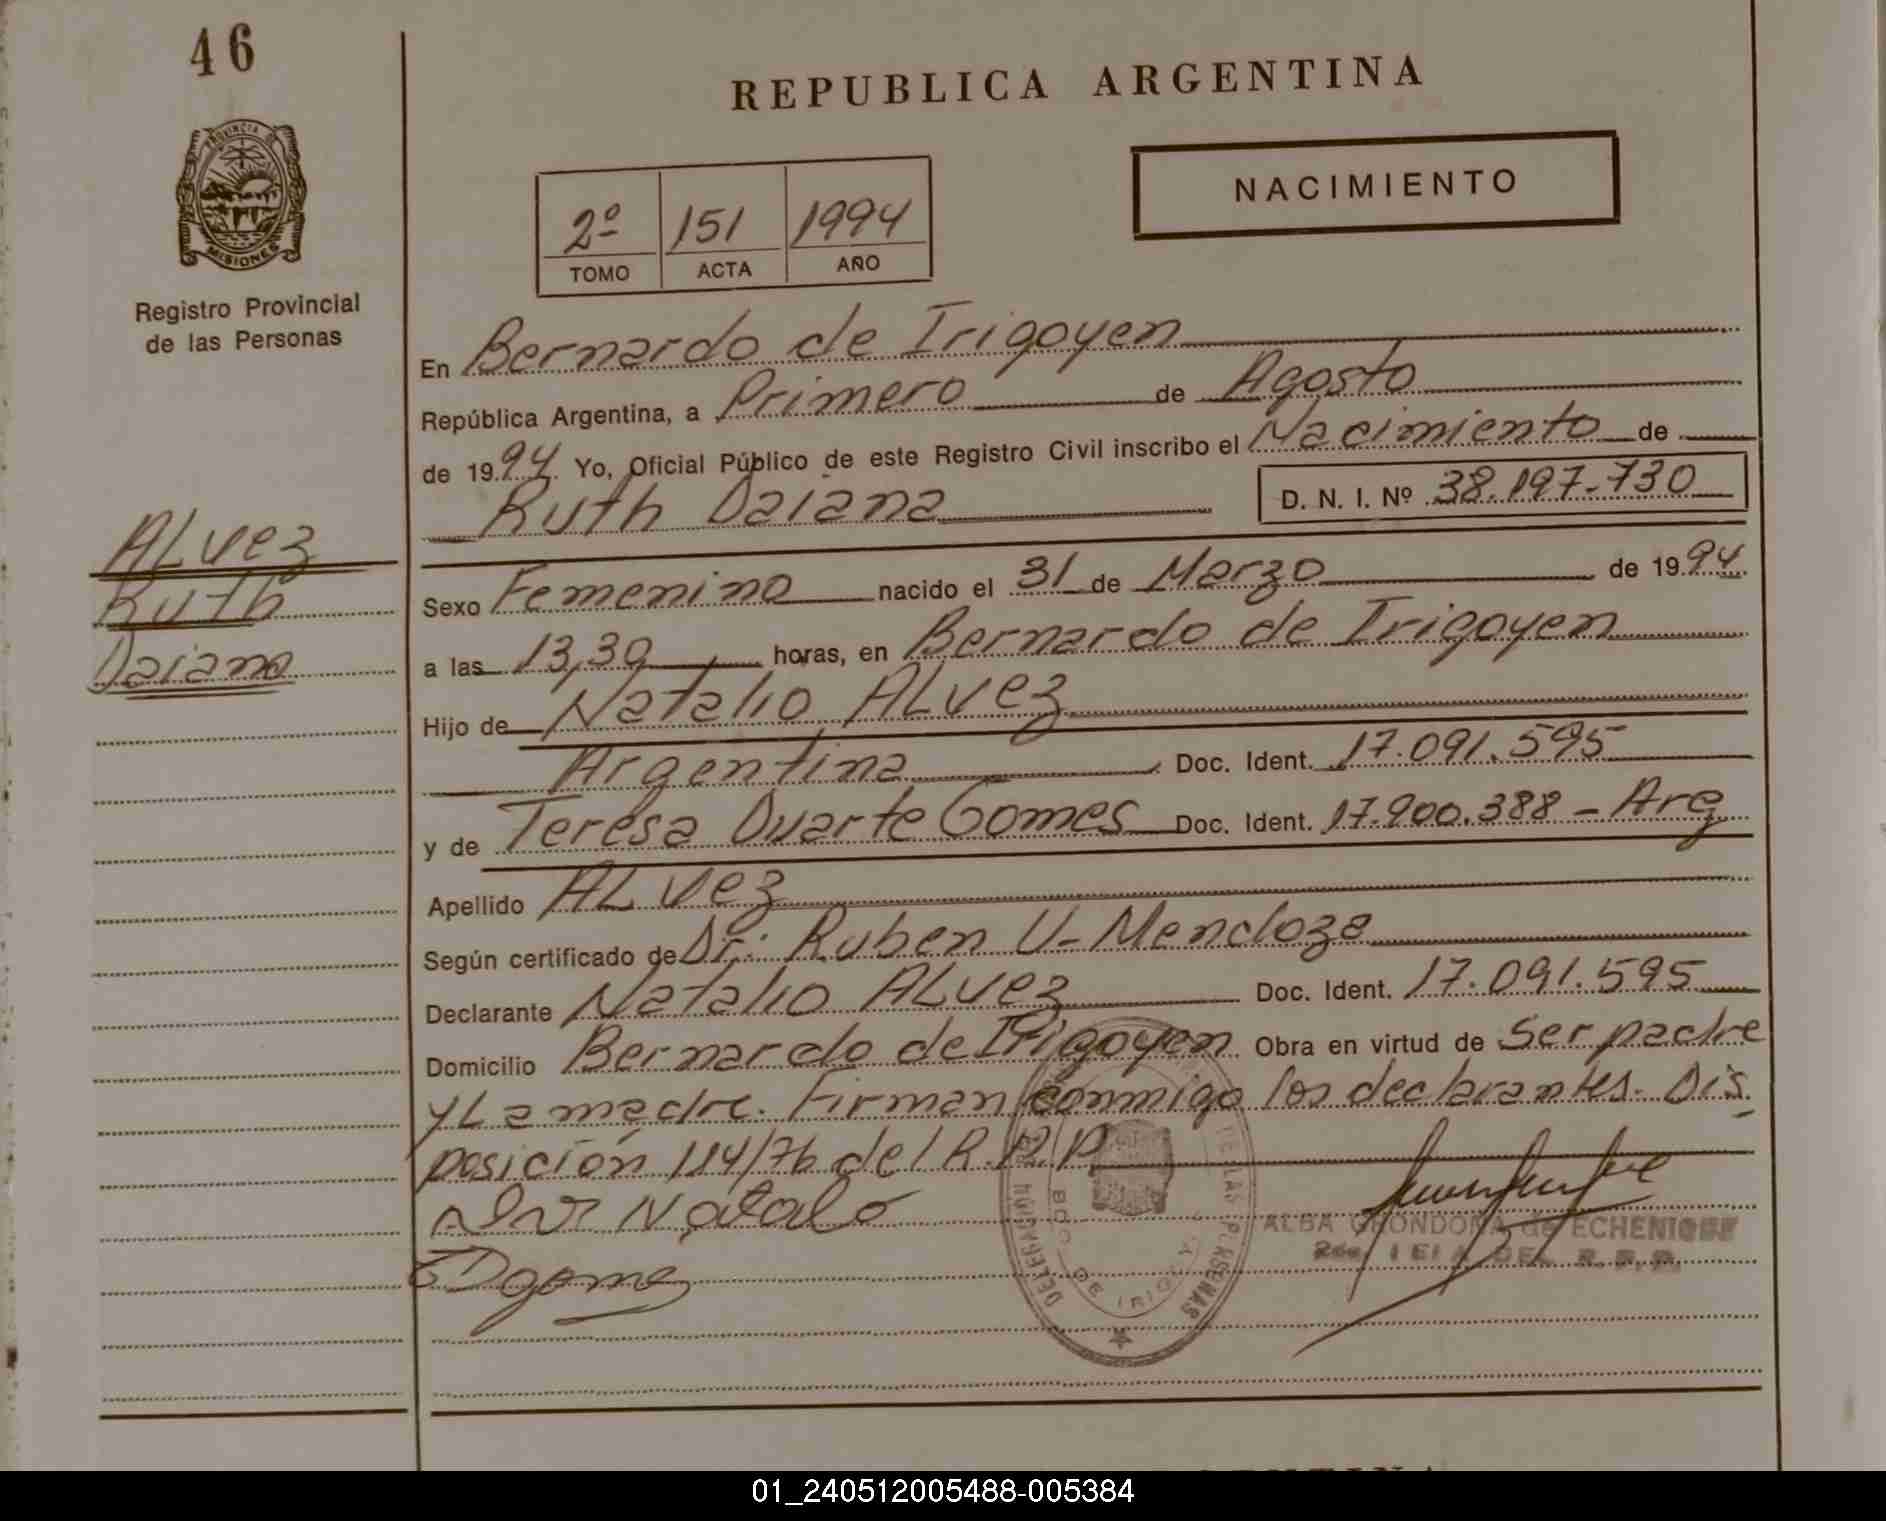 46
REPUBLICA ARGENTINA
PROVINCIA DE
MISIONES
Registro Provincial
de las Personas
NACIMIENTO
2º 151 1994
TOMO ACTA AÑO
En Bernardo de Irigoyen
República Argentina, a Primero de Agosto
de 1994 Yo, Oficial Público de este Registro Civil inscribo el Nacimiento de
Ruth Daiana D. N. I. Nº 38.197.730
ALvez
Ruth
Daiana
Sexo Femenino nacido el 31 de Marzo de 1994
a las 13,30 horas, en Bernardo de Irigoyen
Hijo de Natalio ALvez
Argentina Doc. Ident. 17.091.595
y de Teresa Duarte Gomes Doc. Ident. 17.900.388 - Arg
Apellido ALvez
Según certificado de Dr: Ruben U. Mendoza
Declarante Natalio ALvez Doc. Ident. 17.091.595
Domicilio Bernardo de Irigoyen Obra en virtud de Ser padre
y La madre. Firman conmigo los declarantes. Dis
posición 114/76 del R.P.P
Natalo
ALBA GRONDONA de ECHENIQUE
DEL R.P.P.
DE LAS PERSONAS
BDO. DE IRIGOYEN
01_240512005488-005384